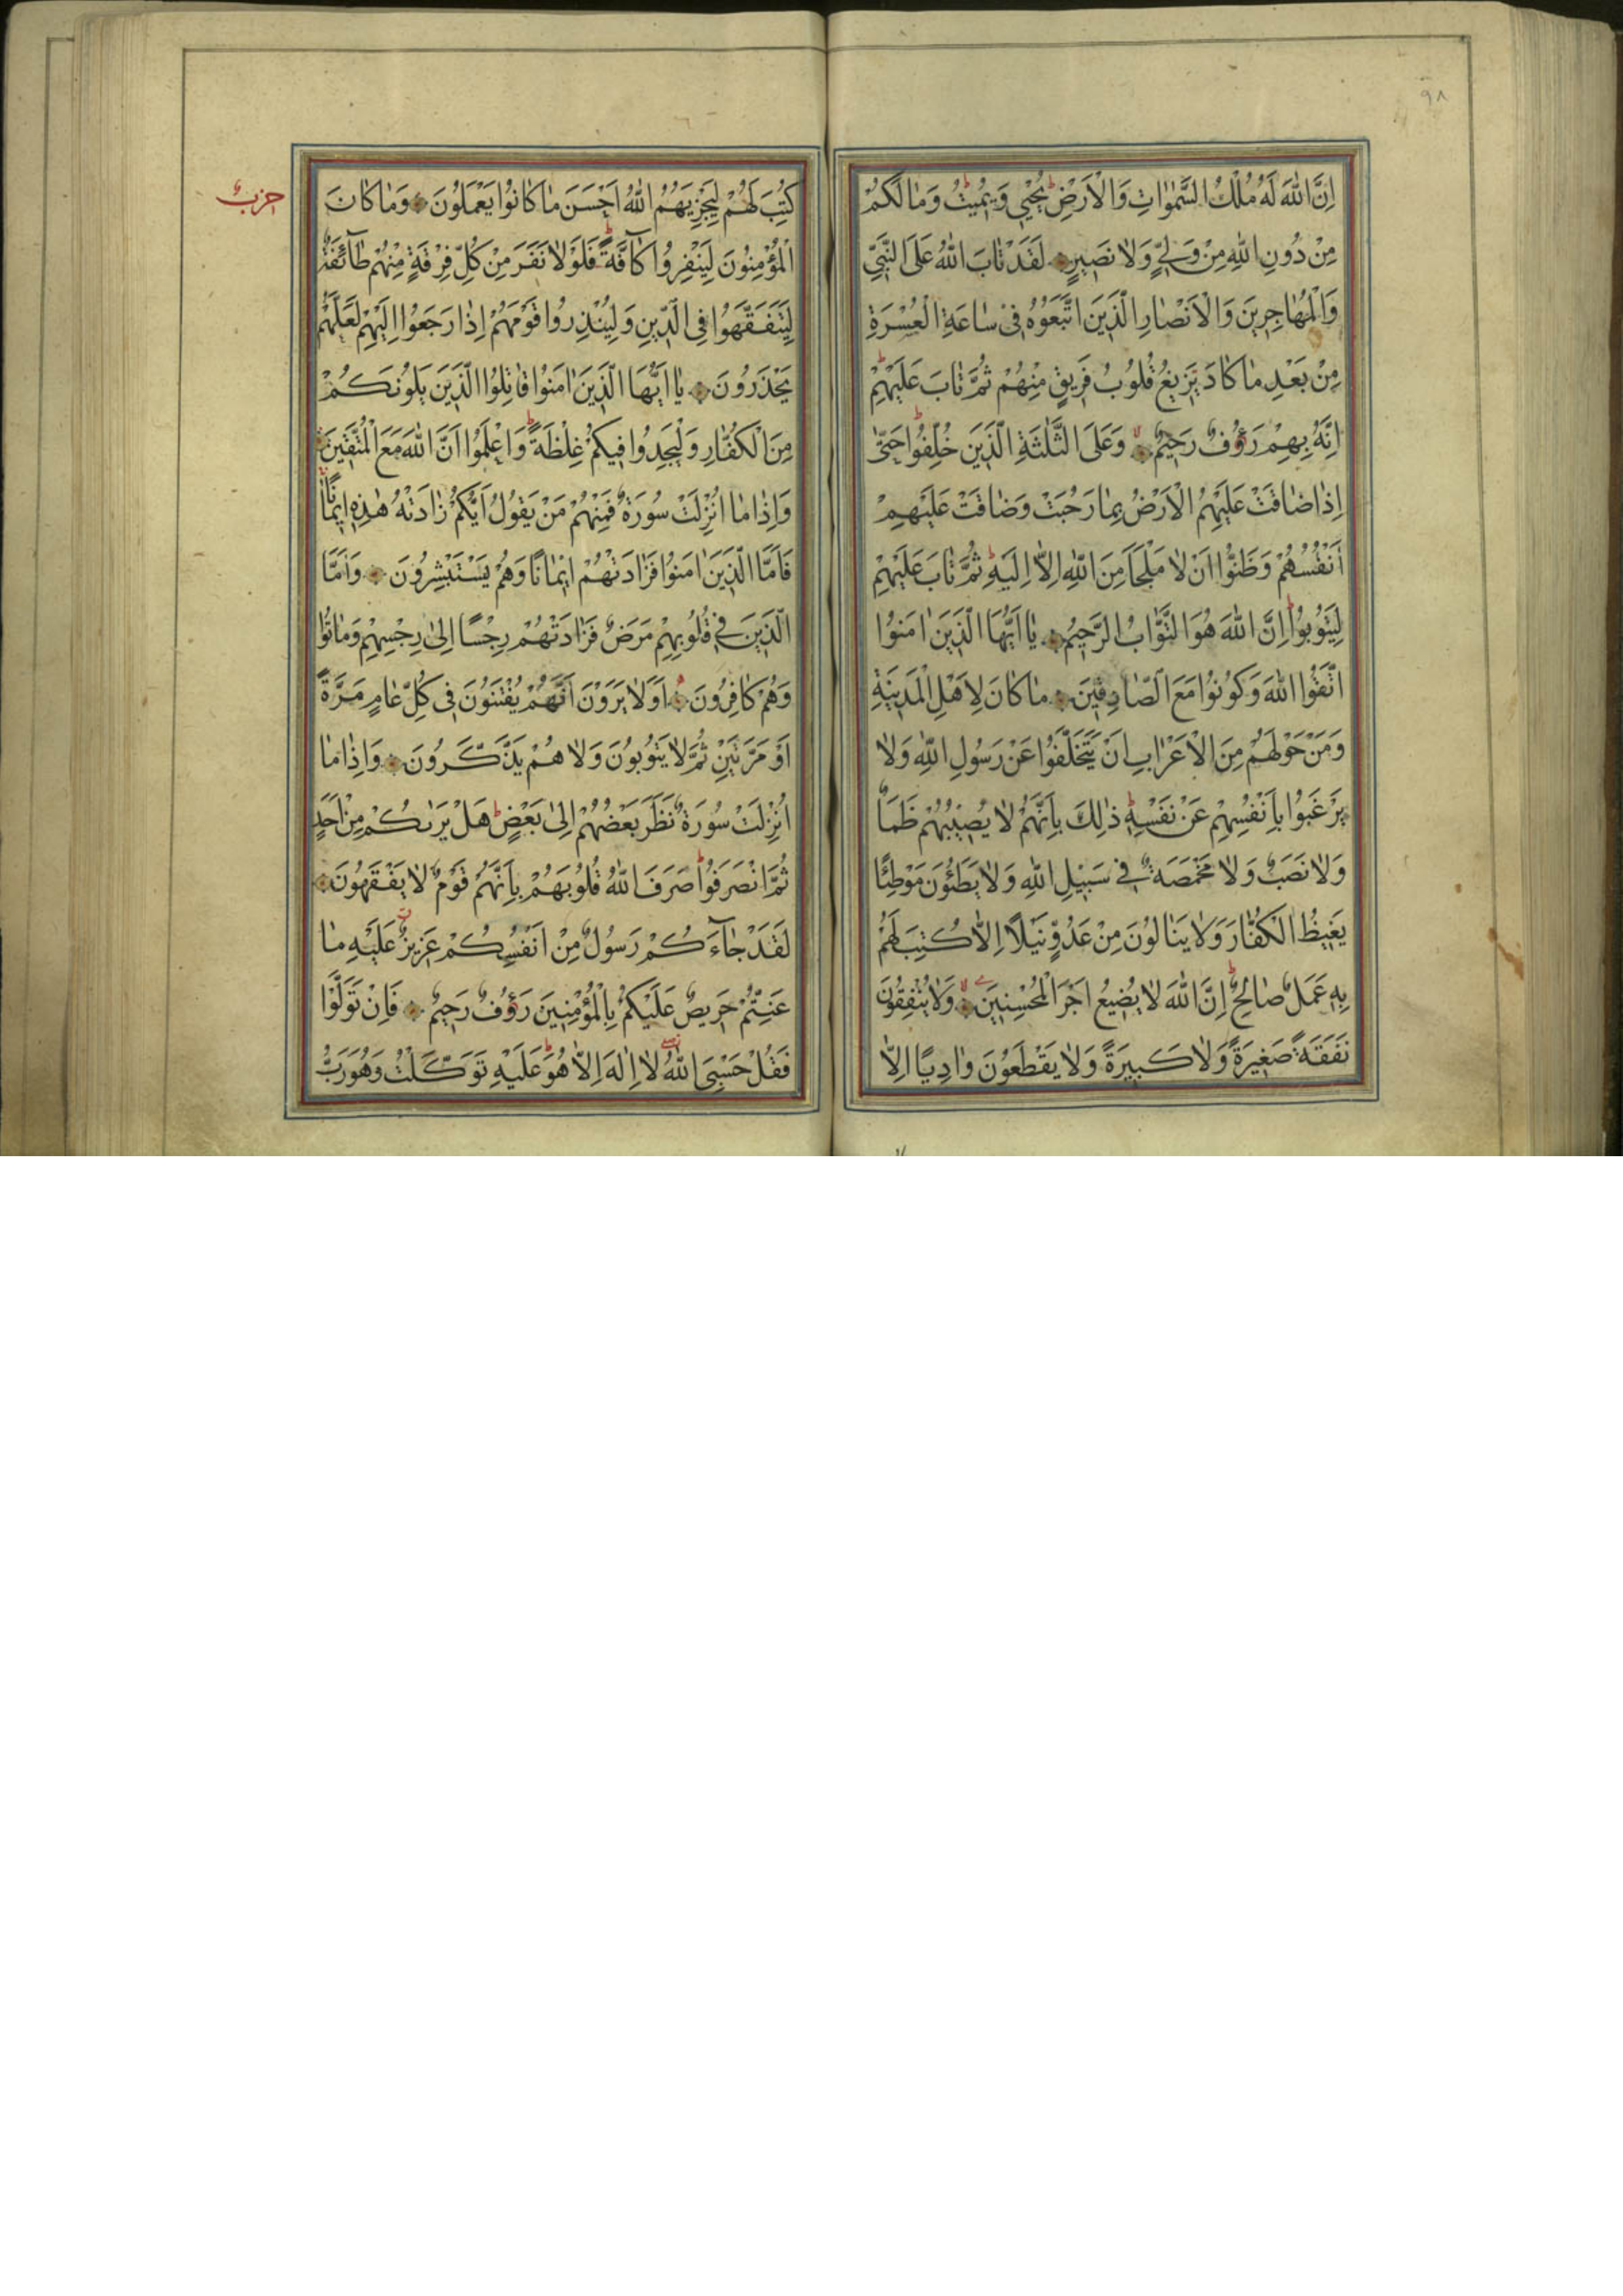 ٩٨
اِنَّ اللّٰهَ لَهُ مُلْكُ السَّمٰوَاتِ وَالْاَرْضِ يُحْيٖي وَيُمٖيتُ وَمَا لَكُمْ
مِنْ دُونِ اللّٰهِ مِنْ وَلِيٍّ وَلَا نَصٖيرٍ لَقَدْ تَابَ اللّٰهُ عَلَى النَّبِيِّ
وَالْمُهَاجِرٖينَ وَالْاَنْصَارِ الَّذٖينَ اتَّبَعُوهُ فٖي سَاعَةِ الْعُسْرَةِ
مِنْ بَعْدِ مَا كَادَ يَزٖيغُ قُلُوبُ فَرٖيقٍ مِنْهُمْ ثُمَّ تَابَ عَلَيْهِمْ
اِنَّهُ بِهِمْ رَؤُفٌ رَحٖيمٌ وَعَلَى الثَّلٰثَةِ الَّذٖينَ خُلِّفُوا حَتّٰى
اِذَا ضَاقَتْ عَلَيْهِمُ الْاَرْضُ بِمَا رَحُبَتْ وَضَاقَتْ عَلَيْهِمْ
اَنْفُسُهُمْ وَظَنُّوا اَنْ لَا مَلْجَاَ مِنَ اللّٰهِ اِلَّا اِلَيْهِ ثُمَّ تَابَ عَلَيْهِمْ
لِيَتُوبُوا اِنَّ اللّٰهَ هُوَ التَّوَّابُ الرَّحٖيمُ يَا اَيُّهَا الَّذٖينَ اٰمَنُوا
اتَّقُوا اللّٰهَ وَكُونُوا مَعَ الصَّادِقٖينَ مَا كَانَ لِاَهْلِ الْمَدٖينَةِ
وَمَنْ حَوْلَهُمْ مِنَ الْاَعْرَابِ اَنْ يَتَخَلَّفُوا عَنْ رَسُولِ اللّٰهِ وَلَا
يَرْغَبُوا بِاَنْفُسِهِمْ عَنْ نَفْسِهٖ ذٰلِكَ بِاَنَّهُمْ لَا يُصٖيبُهُمْ ظَمَاٌ
وَلَا نَصَبٌ وَلَا مَخْمَصَةٌ فٖي سَبٖيلِ اللّٰهِ وَلَا يَطَئُونَ مَوْطِئًا
يَغٖيظُ الْكُفَّارَ وَلَا يَنَالُونَ مِنْ عَدُوٍّ نَيْلًا اِلَّا كُتِبَ لَهُمْ
بِهٖ عَمَلٌ صَالِحٌ اِنَّ اللّٰهَ لَا يُضٖيعُ اَجْرَ الْمُحْسِنٖينَ وَلَا يُنْفِقُونَ
نَفَقَةً صَغٖيرَةً وَلَا كَبٖيرَةً وَلَا يَقْطَعُونَ وَادِيًا اِلَّا
حزب
كُتِبَ لَهُمْ لِيَجْزِيَهُمُ اللّٰهُ اَحْسَنَ مَا كَانُوا يَعْمَلُونَ وَمَا كَانَ
الْمُؤْمِنُونَ لِيَنْفِرُوا كَآفَّةً فَلَوْلَا نَفَرَ مِنْ كُلِّ فِرْقَةٍ مِنْهُمْ طَآئِفَةٌ
لِيَتَفَقَّهُوا فِي الدّٖينِ وَلِيُنْذِرُوا قَوْمَهُمْ اِذَا رَجَعُوا اِلَيْهِمْ لَعَلَّهُمْ
يَحْذَرُونَ يَا اَيُّهَا الَّذٖينَ اٰمَنُوا قَاتِلُوا الَّذٖينَ يَلُونَكُمْ
مِنَ الْكُفَّارِ وَلْيَجِدُوا فٖيكُمْ غِلْظَةً وَاعْلَمُوا اَنَّ اللّٰهَ مَعَ الْمُتَّقٖينَ
وَاِذَا مَا اُنْزِلَتْ سُورَةٌ فَمِنْهُمْ مَنْ يَقُولُ اَيُّكُمْ زَادَتْهُ هٰذِهٖ اٖيمَانًا
فَاَمَّا الَّذٖينَ اٰمَنُوا فَزَادَتْهُمْ اٖيمَانًا وَهُمْ يَسْتَبْشِرُونَ وَاَمَّا
الَّذٖينَ فٖي قُلُوبِهِمْ مَرَضٌ فَزَادَتْهُمْ رِجْسًا اِلٰى رِجْسِهِمْ وَمَاتُوا
وَهُمْ كَافِرُونَ اَوَلَا يَرَوْنَ اَنَّهُمْ يُفْتَنُونَ فٖي كُلِّ عَامٍ مَرَّةً
اَوْ مَرَّتَيْنِ ثُمَّ لَا يَتُوبُونَ وَلَا هُمْ يَذَّكَّرُونَ وَاِذَا مَا
اُنْزِلَتْ سُورَةٌ نَظَرَ بَعْضُهُمْ اِلٰى بَعْضٍ هَلْ يَرٰىكُمْ مِنْ اَحَدٍ
ثُمَّ انْصَرَفُوا صَرَفَ اللّٰهُ قُلُوبَهُمْ بِاَنَّهُمْ قَوْمٌ لَا يَفْقَهُونَ
لَقَدْ جَآءَكُمْ رَسُولٌ مِنْ اَنْفُسِكُمْ عَزٖيزٌ عَلَيْهِ مَا
عَنِتُّمْ حَرٖيصٌ عَلَيْكُمْ بِالْمُؤْمِنٖينَ رَؤُفٌ رَحٖيمٌ فَاِنْ تَوَلَّوْا
فَقُلْ حَسْبِيَ اللّٰهُ لَا اِلٰهَ اِلَّا هُوَ عَلَيْهِ تَوَكَّلْتُ وَهُوَ رَبُّ